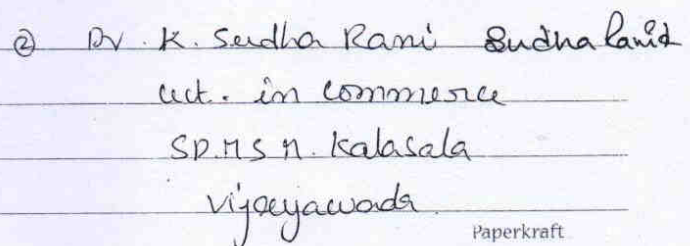 ② Dr. K. Sudha Rani Sudha Rani
Lect. in commerce
SD.M.S M. Kalasala
Vijayawada
Paperkraft